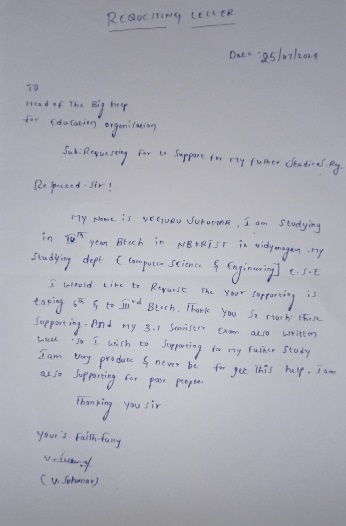 REQUESTING LETTER
Date: 25/07/2024
TO
Head of The Big help
for Education organisation
Sub: Requesting for to Support for my futher studies. Reg.
Respected Sir!
My Name is VEEJURU SUKUMAR. I am studying
in IVth year Btech in NBKRIST in vidynagar. My
Studying dept [Computer Science & Engineering] C.S.E
I would Like to Request the your supporting is
taking 6th & to IIIrd Btech. Thank you so much these
supporting. And my 3.1 Semister Exam also written
well. So I wish to supporting for my futher study
I am very produe & never be for get this help. I am
also supporting for poor people.
Thanking you Sir
Your's Faithfully
(V. Sukumar)